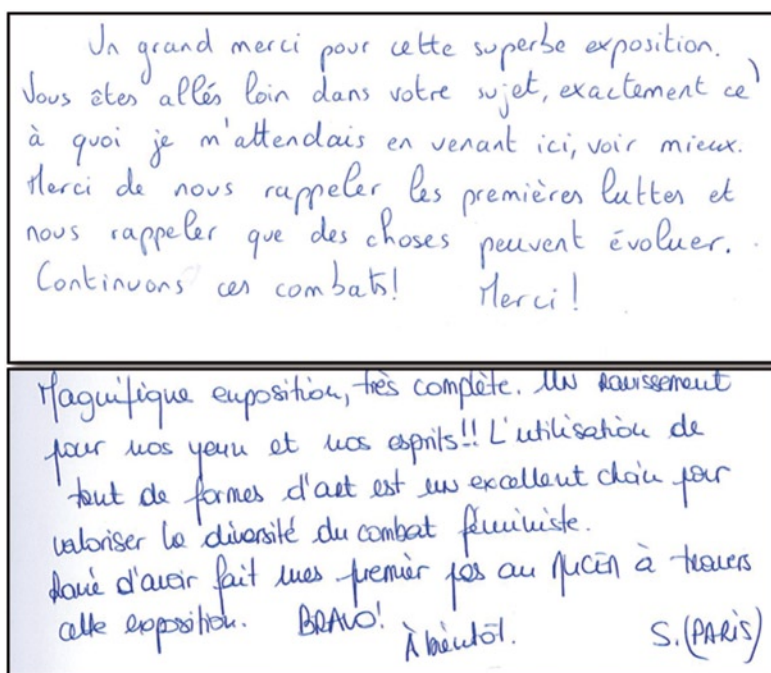 Un grand merci pour cette superbe exposition.
Vous êtes allés loin dans votre sujet, exactement ce
à quoi je m'attendais en venant ici, voir mieux.
Merci de nous rappeler les premières luttes et
nous rappeler que des choses peuvent évoluer.
Continuons ces combats! Merci!
Magnifique exposition, très complète. Un ravissement
pour nos yeux et nos esprits!! L'utilisation de
tant de formes d'art est un excellent choix pour
valoriser la diversité du combat féministe.
Ravie d'avoir fait mes premier pas au MUCEM à travers
cette exposition. BRAVO!
À bientôt. S. (PARIS)